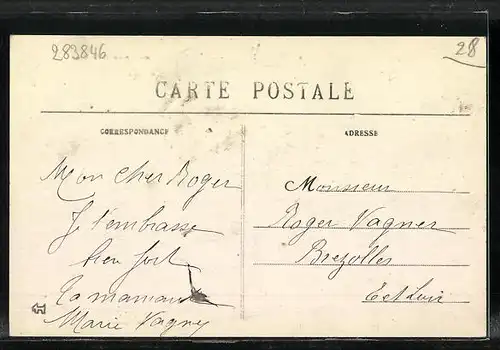 283846
28
CARTE POSTALE
CORRESPONDANCE
ADRESSE
Mon cher Roger
Je t'embrasse
bien fort
Ta maman
Marie Vagny
Monsieur
Roger Vagner
Brezolles
Eet Loir